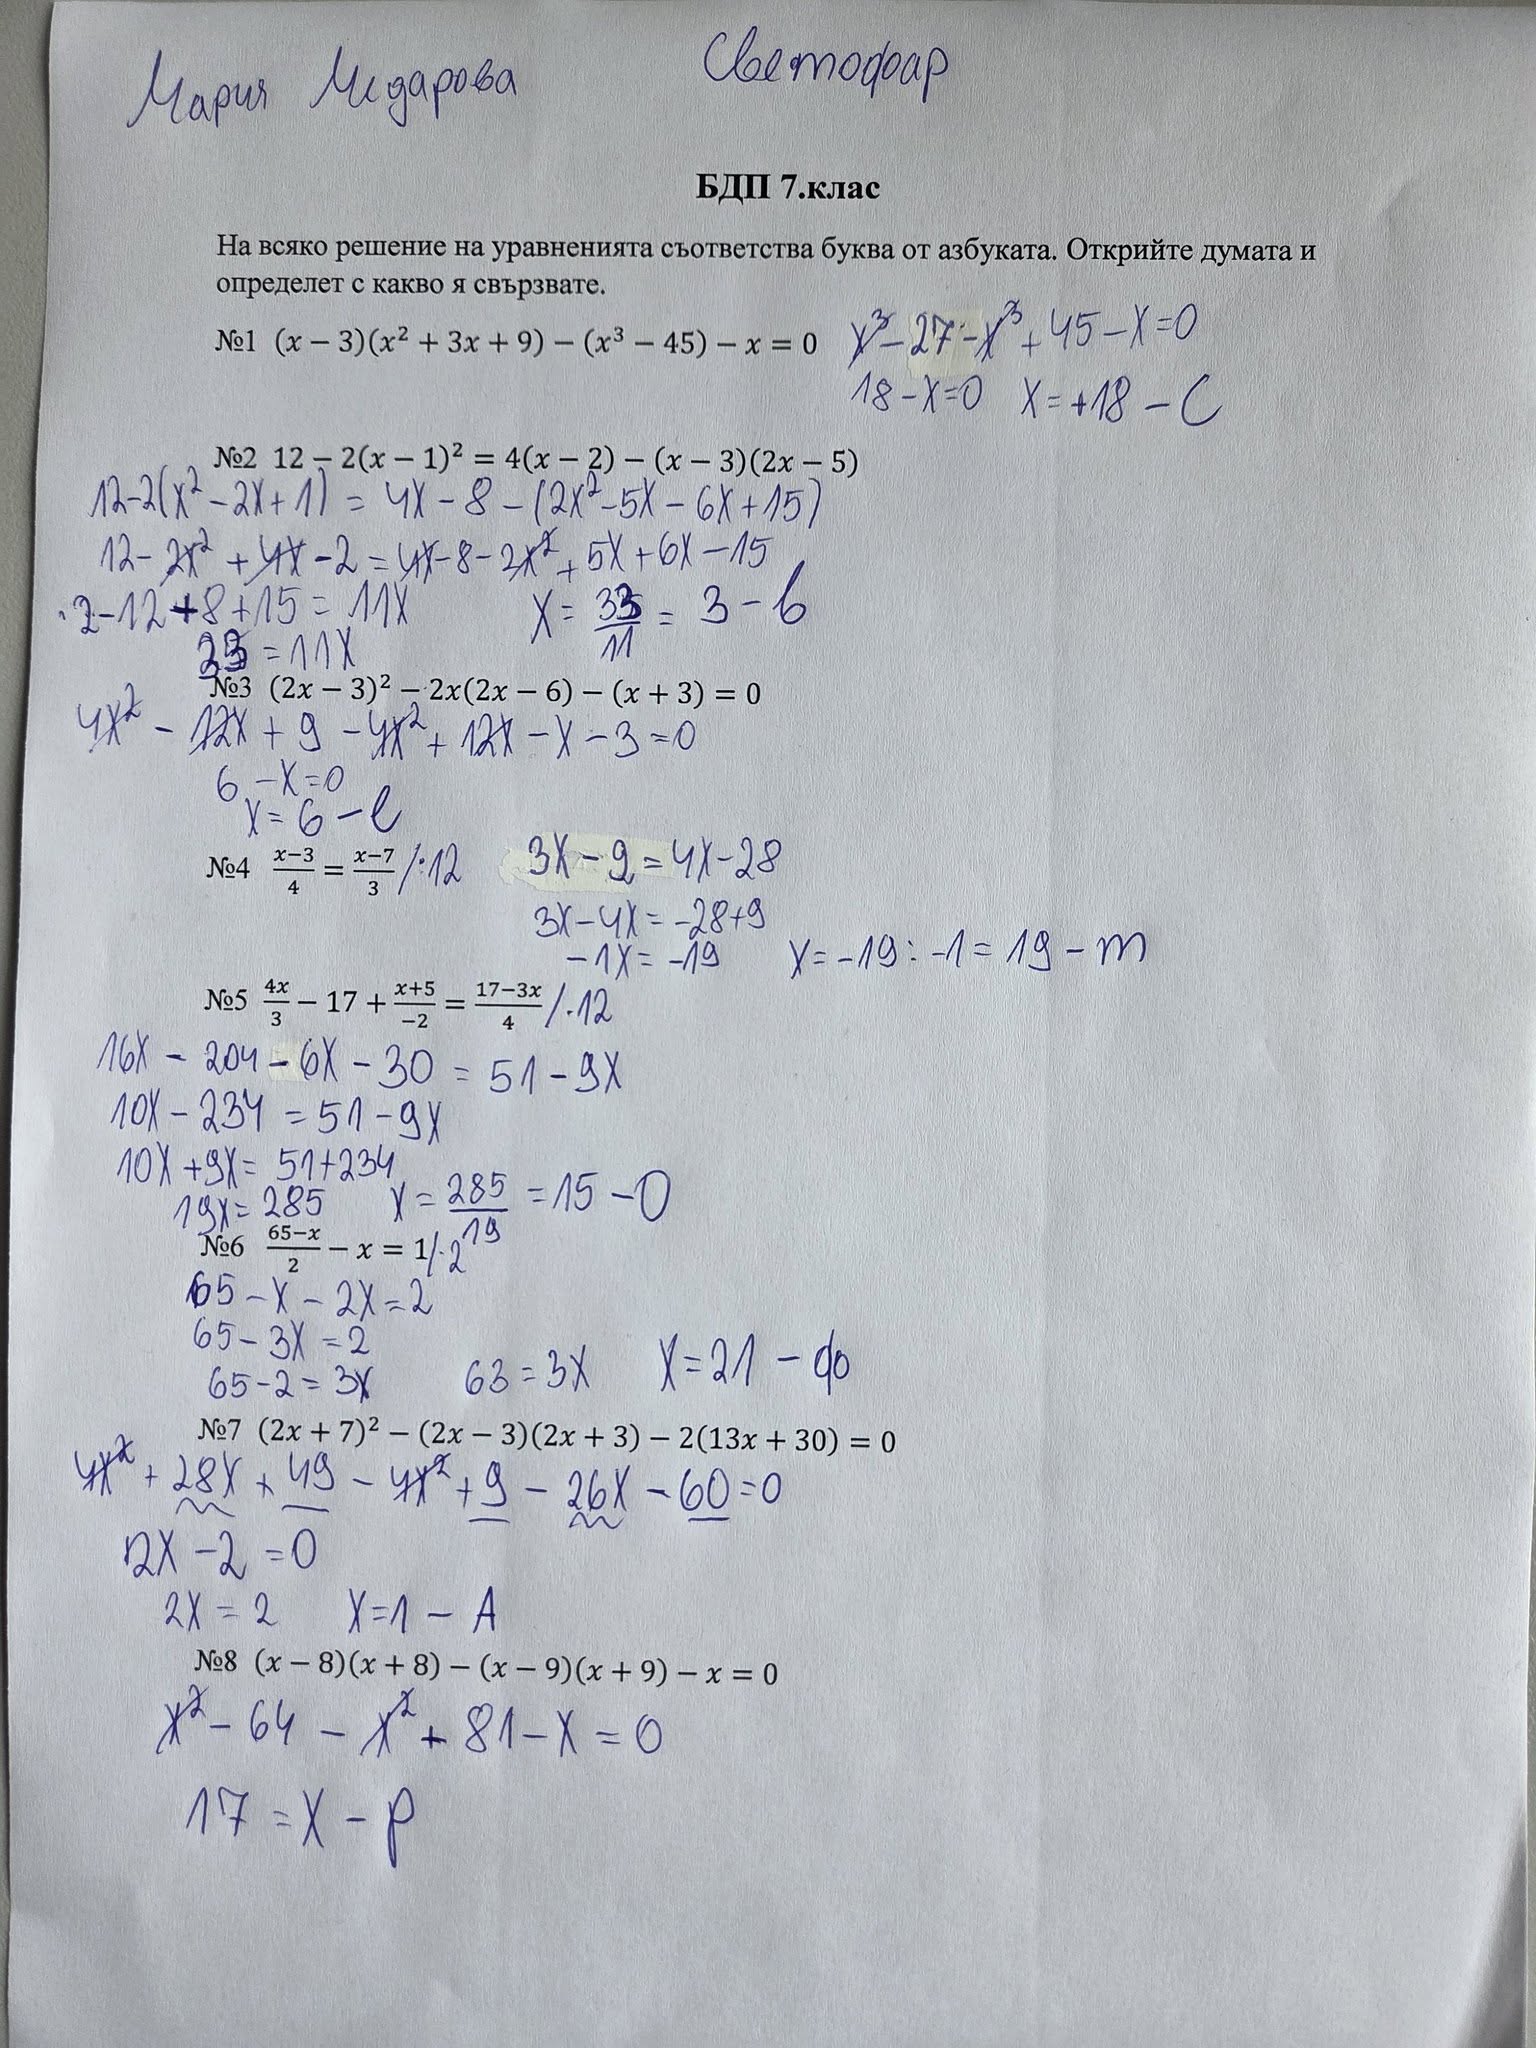 Мария Медарова Светофар
БДП 7.клас
На всяко решение на уравненията съответства буква от азбуката. Открийте думата и
определет с какво я свързвате.
№1 (x − 3)(x² + 3x + 9) − (x³ − 45) − x = 0
x³ − 27 − x³ + 45 − x = 0
18 − x = 0 x = +18 − С
№2 12 − 2(x − 1)² = 4(x − 2) − (x − 3)(2x − 5)
12 − 2(x² − 2x + 1) = 4x − 8 − (2x² − 5x − 6x + 15)
12 − 2x² + 4x − 2 = 4x − 8 − 2x² + 5x + 6x − 15
2 − 12 + 8 + 15 = 11x x = 33/11 = 3 − в
33 = 11x
№3 (2x − 3)² − 2x(2x − 6) − (x + 3) = 0
4x² − 12x + 9 − 4x² + 12x − x − 3 = 0
6 − x = 0
x = 6 − е
№4 (x−3)/4 = (x−7)/3 /·12 3x − 9 = 4x − 28
3x − 4x = −28 + 9
−1x = −19 x = −19 : −1 = 19 − т
№5 4x/3 − 17 + (x+5)/−2 = (17−3x)/4 /·12
16x − 204 − 6x − 30 = 51 − 9x
10x − 234 = 51 − 9x
10x + 9x = 51 + 234
19x = 285 x = 285/19 = 15 − О
№6 (65−x)/2 − x = 1 /·2
65 − x − 2x = 2
65 − 3x = 2
65 − 2 = 3x 63 = 3x x = 21 − ф
№7 (2x + 7)² − (2x − 3)(2x + 3) − 2(13x + 30) = 0
4x² + 28x + 49 − 4x² + 9 − 26x − 60 = 0
2x − 2 = 0
2x = 2 x = 1 − А
№8 (x − 8)(x + 8) − (x − 9)(x + 9) − x = 0
x² − 64 − x² + 81 − x = 0
17 = x − р